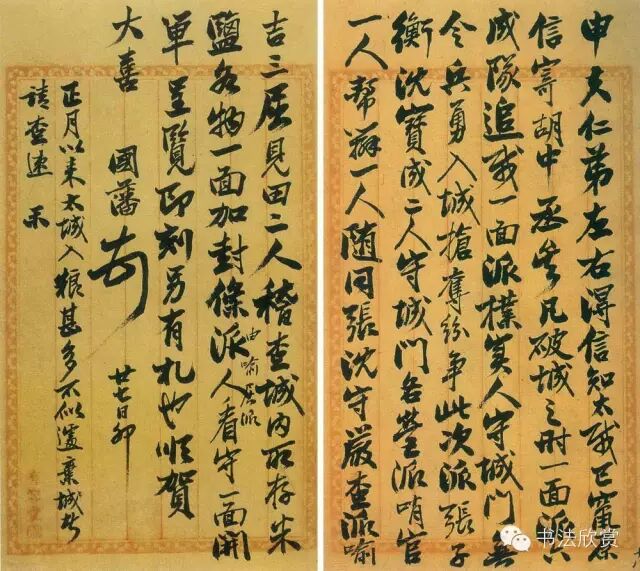 申夫仁弟左右得信知太賊已竄余
信寄胡中丞矣凡破城之時一面派八
成隊追賊一面派樸實人守城門無
令兵勇入城搶奪紛爭此次派張子
衡沈寶成二人守城門各營派哨官
一人幫辦一人隨同張沈守嚴查派喻
吉三屈見田二人稽查城內所存米
鹽各物一面加封條派人看守一面開
由喻屈派
單呈覽即刻另有札也順賀
大喜 國藩頓首 廿七日卯
正月以來太城入糧甚多不似遽棄城者
請查速示
书法欣赏